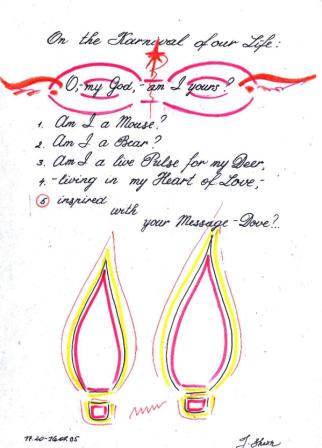 On the Karneval of our Life:
O,-my God,-am I yours?
1. Am I a Mouse?
2. Am I a Bear?
3. Am I a live Pulse for my Deer,
4. -living in my Heart of Love,-
5 inspired
with
your Message-Dove?..